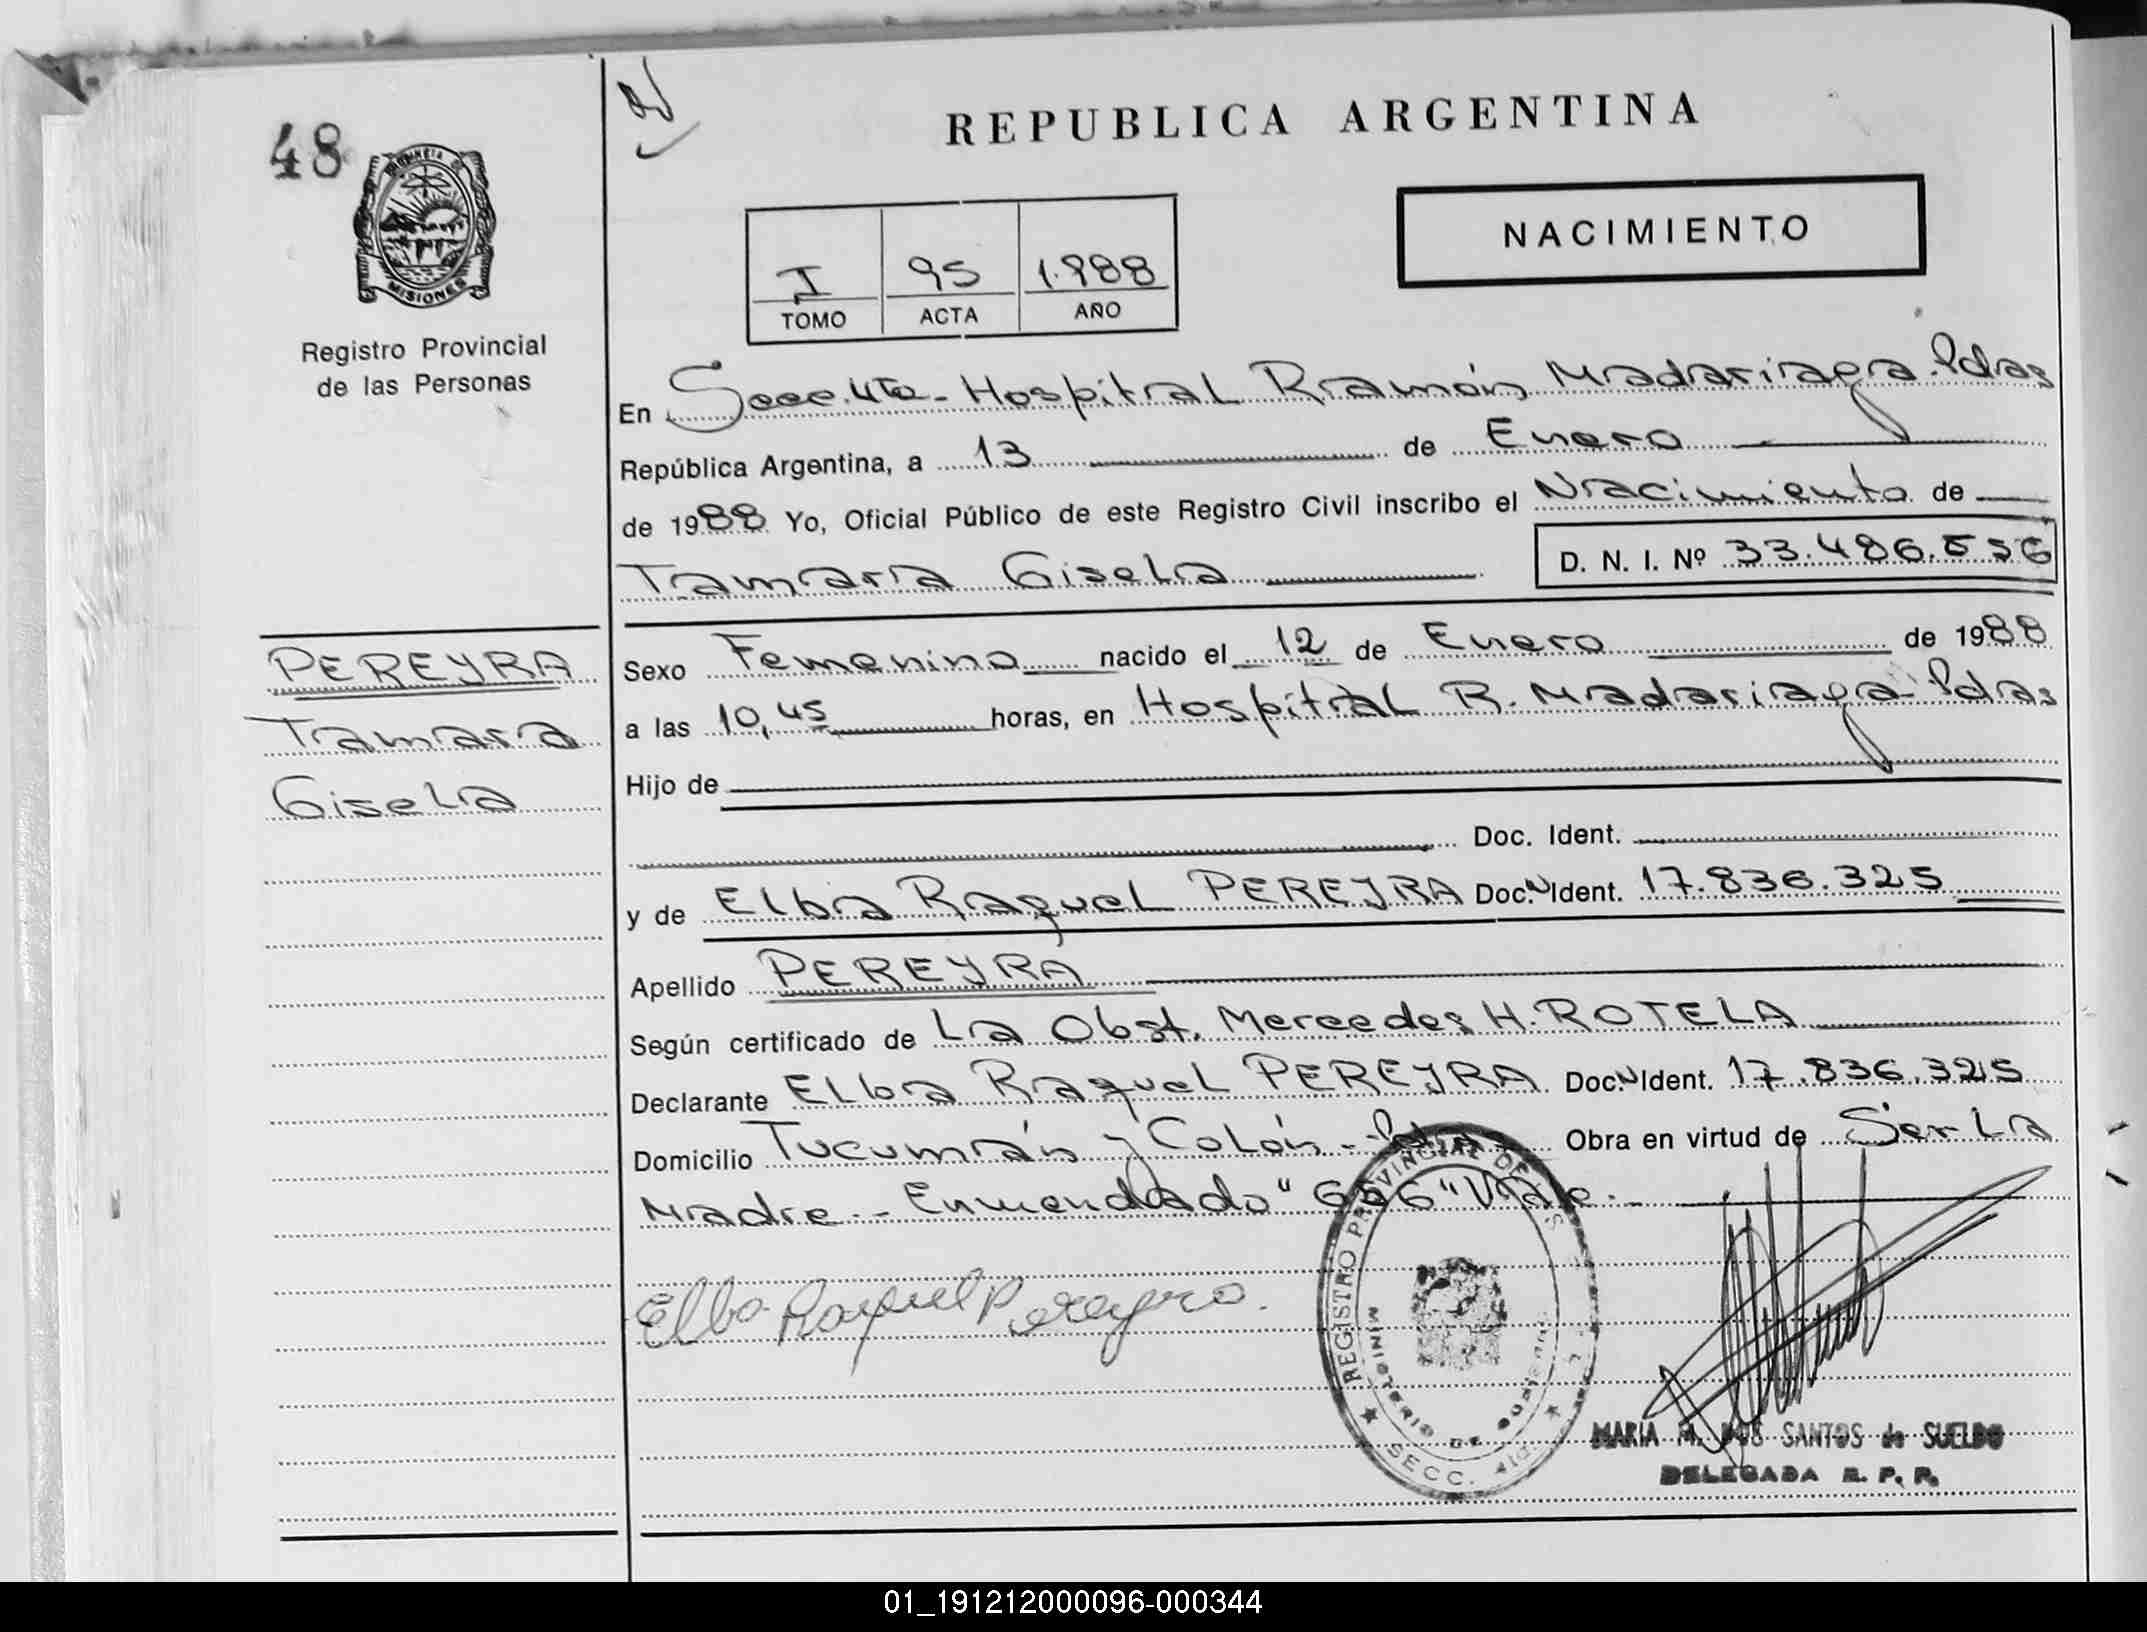 48
REPUBLICA ARGENTINA
PROVINCIA DE
MISIONES
NACIMIENTO
I 95 1.988
TOMO ACTA AÑO
Registro Provincial
de las Personas
En Secc. 4ta - Hospital Ramón Madariaga. Pdas
República Argentina, a 13 de Enero
de 1988 Yo, Oficial Público de este Registro Civil inscribo el Nacimiento de
Tamara Gisela
D. N. I. Nº 33.486.
PEREYRA
Tamara
Gisela
Sexo Femenino nacido el 12 de Enero de 1988
a las 10,45 horas, en Hospital R. Madariaga - Pdas
Hijo de
Doc. Ident.
y de Elba Raquel PEREYRA Doc. N Ident. 17.836.325
Apellido PEREYRA
Según certificado de La Obst. Mercedes H. ROTELA
Declarante Elba Raquel PEREYRA Doc. N Ident. 17.836.325
Domicilio Tucumán y Colón - Pdas Obra en virtud de Ser La
Madre - Enmendado " " Vale.
Elba Raquel Pereyra.
REGISTRO PROVINCIAL DE LAS
MINISTERIO DE GOBIERNO
SECC. 4ta.
MARIA M. DOS SANTOS de SUELDO
DELEGADA R. P. P.
01_191212000096-000344